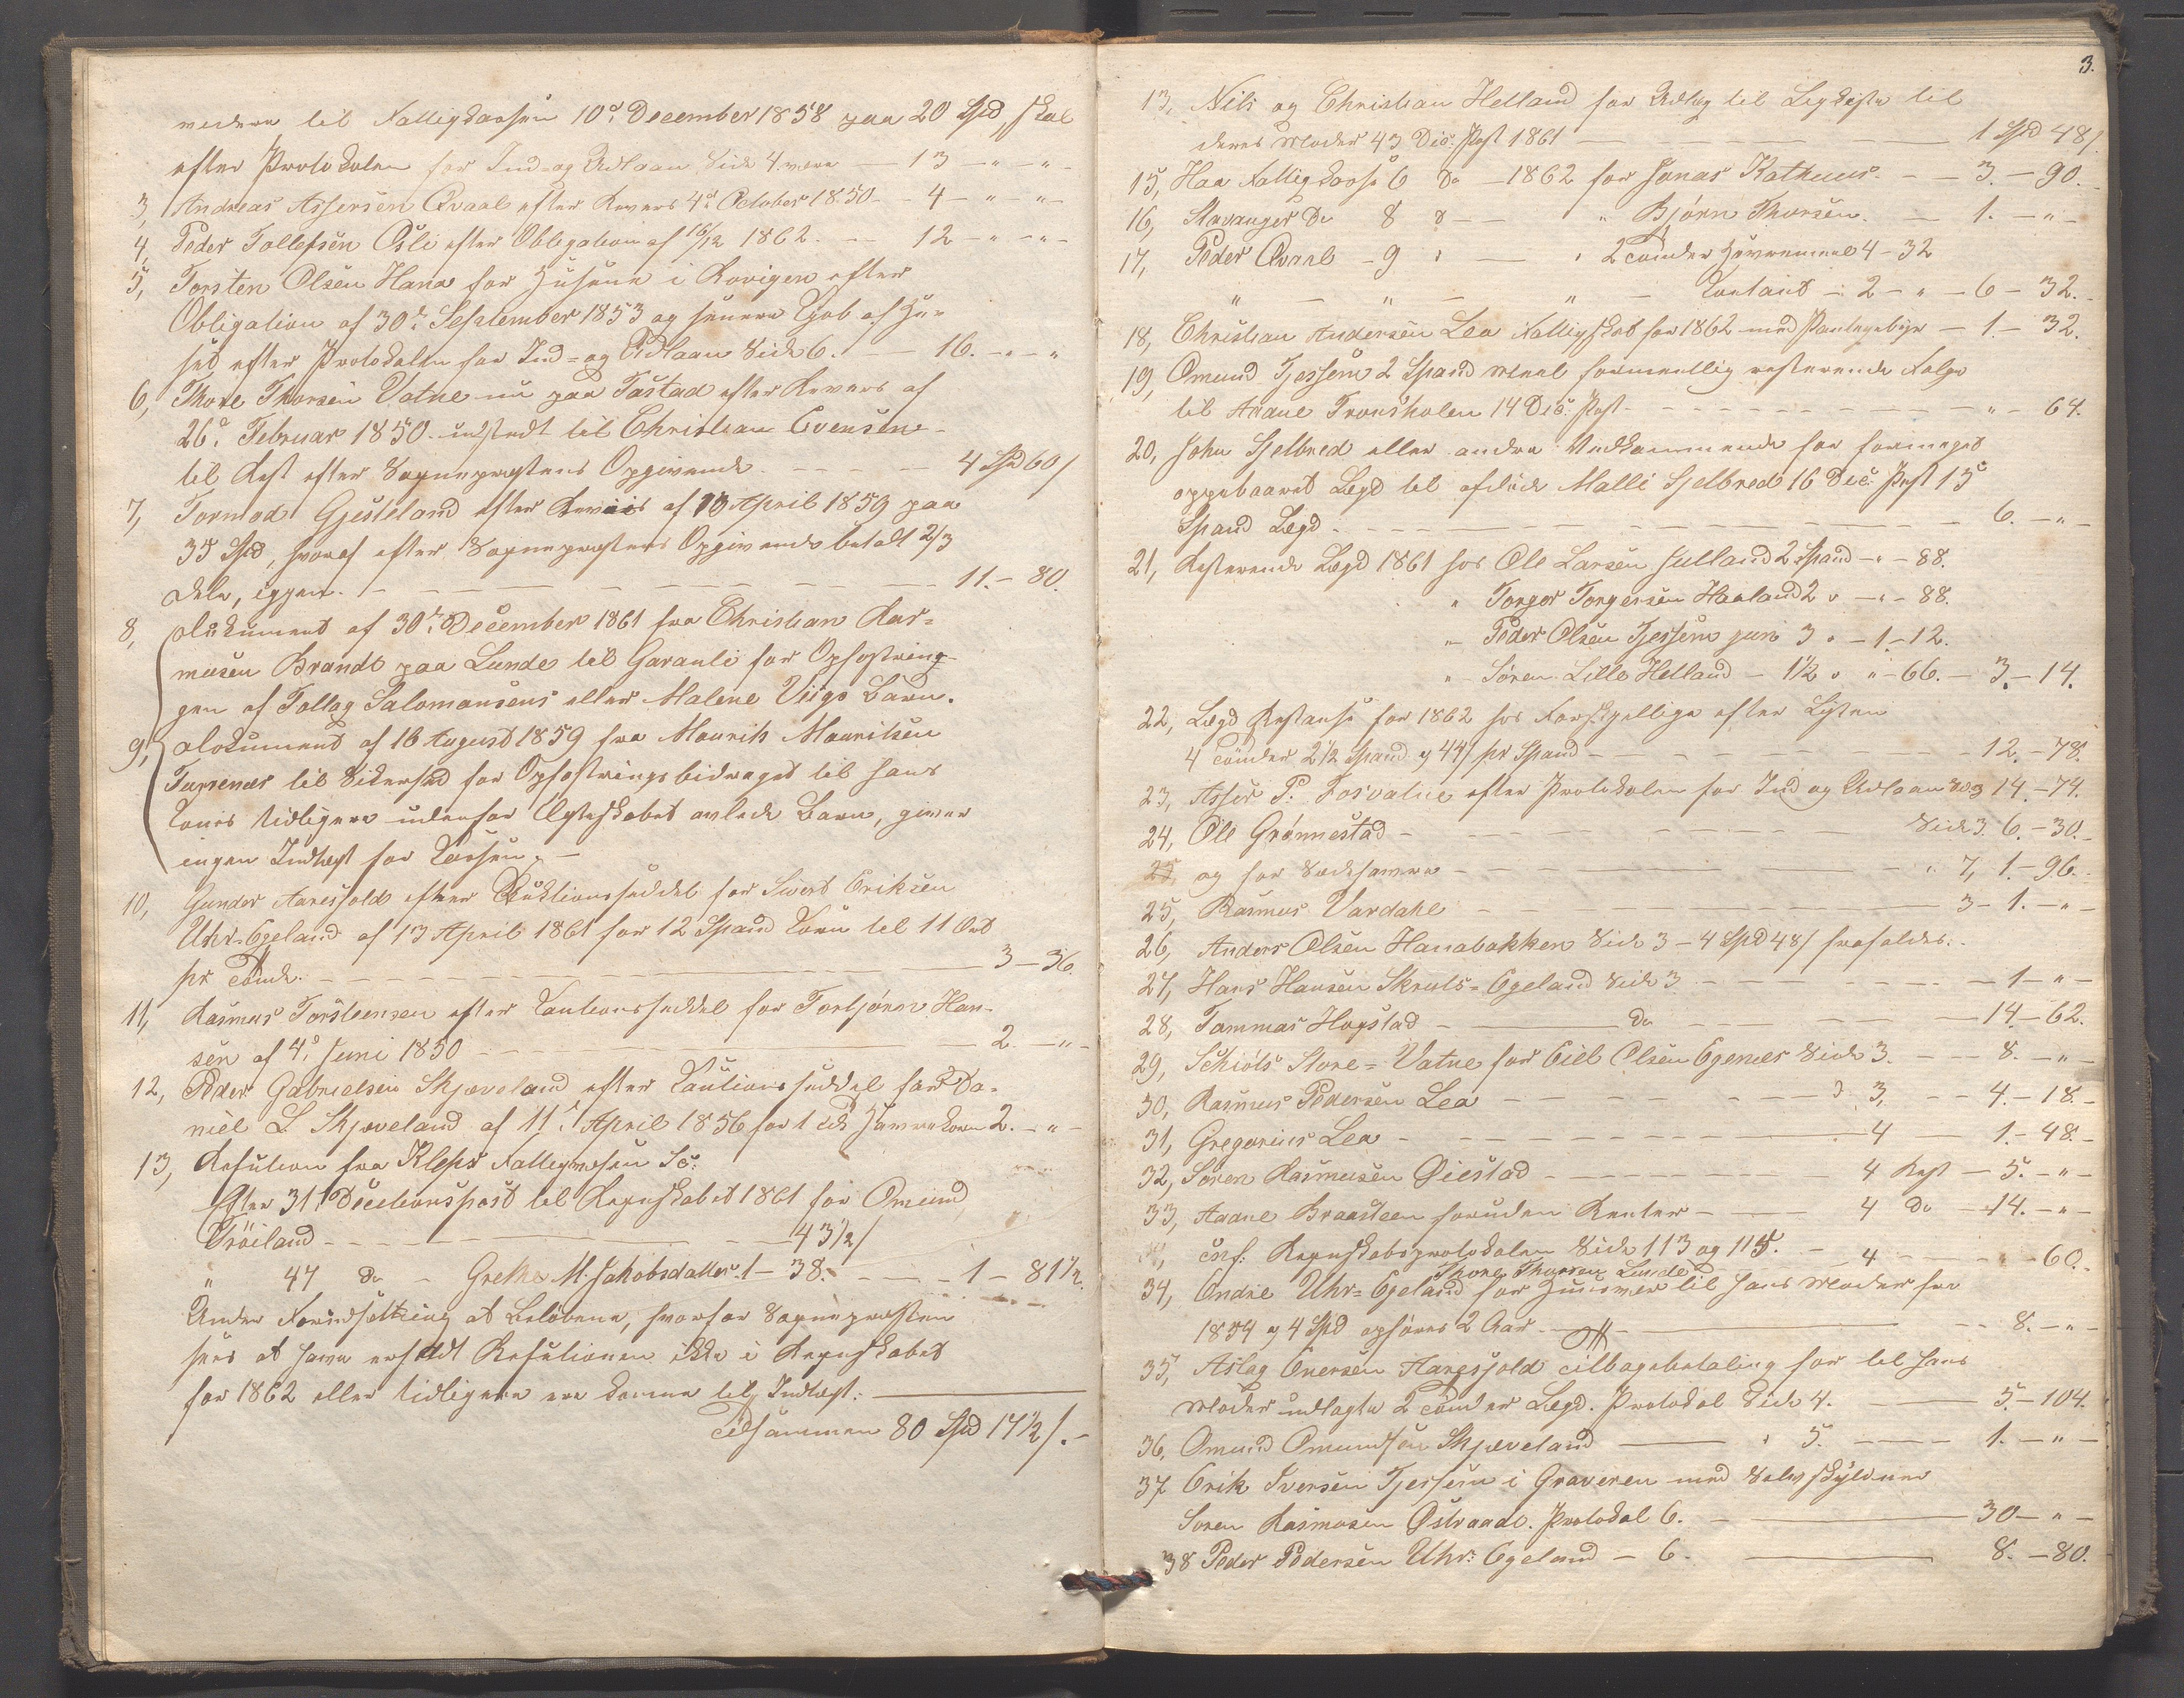 til Fattigkassen 10de December 1858 paa 20 Spd, skal
efter Protokolen for Ind- og Udlaan Side 4 være — 13 — " — " —
3, Andreas Assersen Qvaal efter Revers 4de October 1850 — 4 — " — " —
4, Peder Tollefsen Osli efter Obligation af 16/12 1862. — 12 — " — " —
5, Torsten Olsen Hana for Husene i efter
Obligation af 30te September 1853 og senere Kjøb af Hu-
set efter Protokolen for Ind- og Udlaan Side 6. — 16. — " — "
6, Thore Thorsen Vatne nu paa Tastad efter Revers af
26de Februar 1850 udstedt til Christian Evensen
til Rest efter Sognepræstens Opgivende — 4 Spd 60 /
7, Tormod Gjesteland efter Revers af 13 April 1859 paa
35 Spd, hvoraf efter Sognepræstens Opgivende betalt 2/3
Dele, igjen. — 11. — 80.
8, Dokument af 30te December 1861 fra Christian Ras-
musen Brandt paa Lunde til Garanti for Opfostrin-
gen af Tollag Salomonsens eller Malene Viigs Barn.
9, Dokument af 16 August 1859 fra Mourits Mouritsen
til Sikerhed for Opfostringsbidraget til hans
Kones tidligere udenfor Ægteskabet avlede Barn, giver
ingen Indtægt for Kassen. —
10, Gunder Aaresjold efter Auktionsseddel for Sivert Eriksen
Uhr-Egeland af 13 April 1861 for 12 Spand Korn til 11 Ort
pr Tønde. — 3 — 36.
11, Rasmus Torstensen efter Kautionsseddel for Torbjørn Han-
sen af 4de Juni 1850 — 2. — " —
12, Peder Gabrielsen Skjæveland efter Kautionsseddel for Da-
niel L. Skjæveland af 11te April 1856 for 1 Havrekorn 2. — " —
13, Refution fra Kleps
Efter 31te Decisionspost til Regnskabet 1861 for Omund
Frøiland — 43 1/2 /
" 47 do — Grethe M. Jakobsdatter. 1 — 38. — 1 — 81 1/2.
Under Forudsætning at Beløbene, hvorfor Sognepræsten
siges at have erholdt Refutionen ikke i Regnskabet
for 1862 eller tidligere ere komne til Indtægt: —
Tilsammen 80 Spd 17 1/2 /. —
3.
13, Nils og Christian Helland for Udlæg til Ligkiste til
deres Moder 43 Dec. Post 1861 — 1 Spd 48 /.
15, Haa Fattigkasse 6 do — 1862 for Jonas — 3. — 90.
16, Stavanger do 8 " — " Bjørn Thorsen. — 1. — " —
17, Peder Qvaal — 9 " — " 2 Tønder Havremeel 4 — 32
" — " — " — Kontant — 2 — " — 6 — 32.
18, Christian Andersen Lea Fattigskat for 1862 med — 1 — 32.
19, Omund Tjessem 2 Spand Meel formentlig resterende
til Aadne Tronsholen 14 Dec. Post — " — 64.
20, John Sjelbred eller andre Vedkommende for formeget
oppebaaret Lægd til afdøde Malli Sjelbred 16 Dec. Post 15
Spand Lægd — 6. — " —
21, Resterende Lægd 1861 hos Ole Larsen Julland 2 Spand — " — 88.
" Torger Torgersen Haaland 2 " — " — 88.
" Peder Olsen Tjessem jun 3 " — 1 — 12.
" Søren Lille Helland — 1 1/2 " " — 66. — 3. — 14.
22, Lægd Restanse for 1862 hos Forskjellige efter Listen
4 Tønder 2 1/2 Spand a 44 / pr Spand — 12. — 78.
23, Asser P. Fosvatne efter Protokolen for Ind og Udlaan S. 3 14. — 74.
24, Ole Grønnestad — Side 3. 6. — 30. —
25 og for Sædhavre — " 7, 1. — 96.
25, Rasmus Vardahl — 3 — 1. — " —
26, Anders Olsen Hanabakken Side 3 — 4 Spd 48 / frafaldes.
27, Hans Hansen Skruts-Egeland Side 3 — 1 — " —
28, Tommas Hogstad — do — 14. — 62.
29, Schiöts Store-Vatne for Eiel Olsen Egenæs Side 3. — 8. — " —
30, Rasmus Pedersen Lea — " 3, — 4. — 18. —
31, Gregorius Lea — 4 1. — 48. —
32, Søren Rasmusen Øiestad — 4 Rest — 5. — " —
33, Aadne Braasteen foruden Renter — 4 do — 14. — " —
Regnskabsprotokolen Side 113 og 115. — 4 — 60. —
Thore Thorsen Lunde
34, Endre Uhr-Egeland for til hans Moder for
1854 a 4 Spd opføres 2 Aar — 8. — " —
35, Aslag Enersen Haresjold tilbagebetaling for til hans
Moder udlagte 2 Tønder Lægd. Protokol Side 4. — 5. — 104.
36, Omund Omundsen Skjæveland — " 5. — 1. — " —
37 Erik Iversen Tjessem i Graveren med Selvskyldner
Soren Rasmusen Østraadt. Protokol 6. — 30 — " —
38 Peder Pedersen Uhr-Egeland — 6. — 8. — 80.